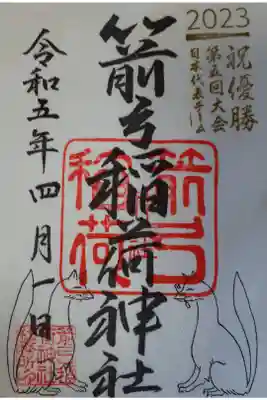 2023
祝優勝
第五回大会
日本代表チーム
箭弓稲荷神社
箭弓
稲荷
令和五年四月一日